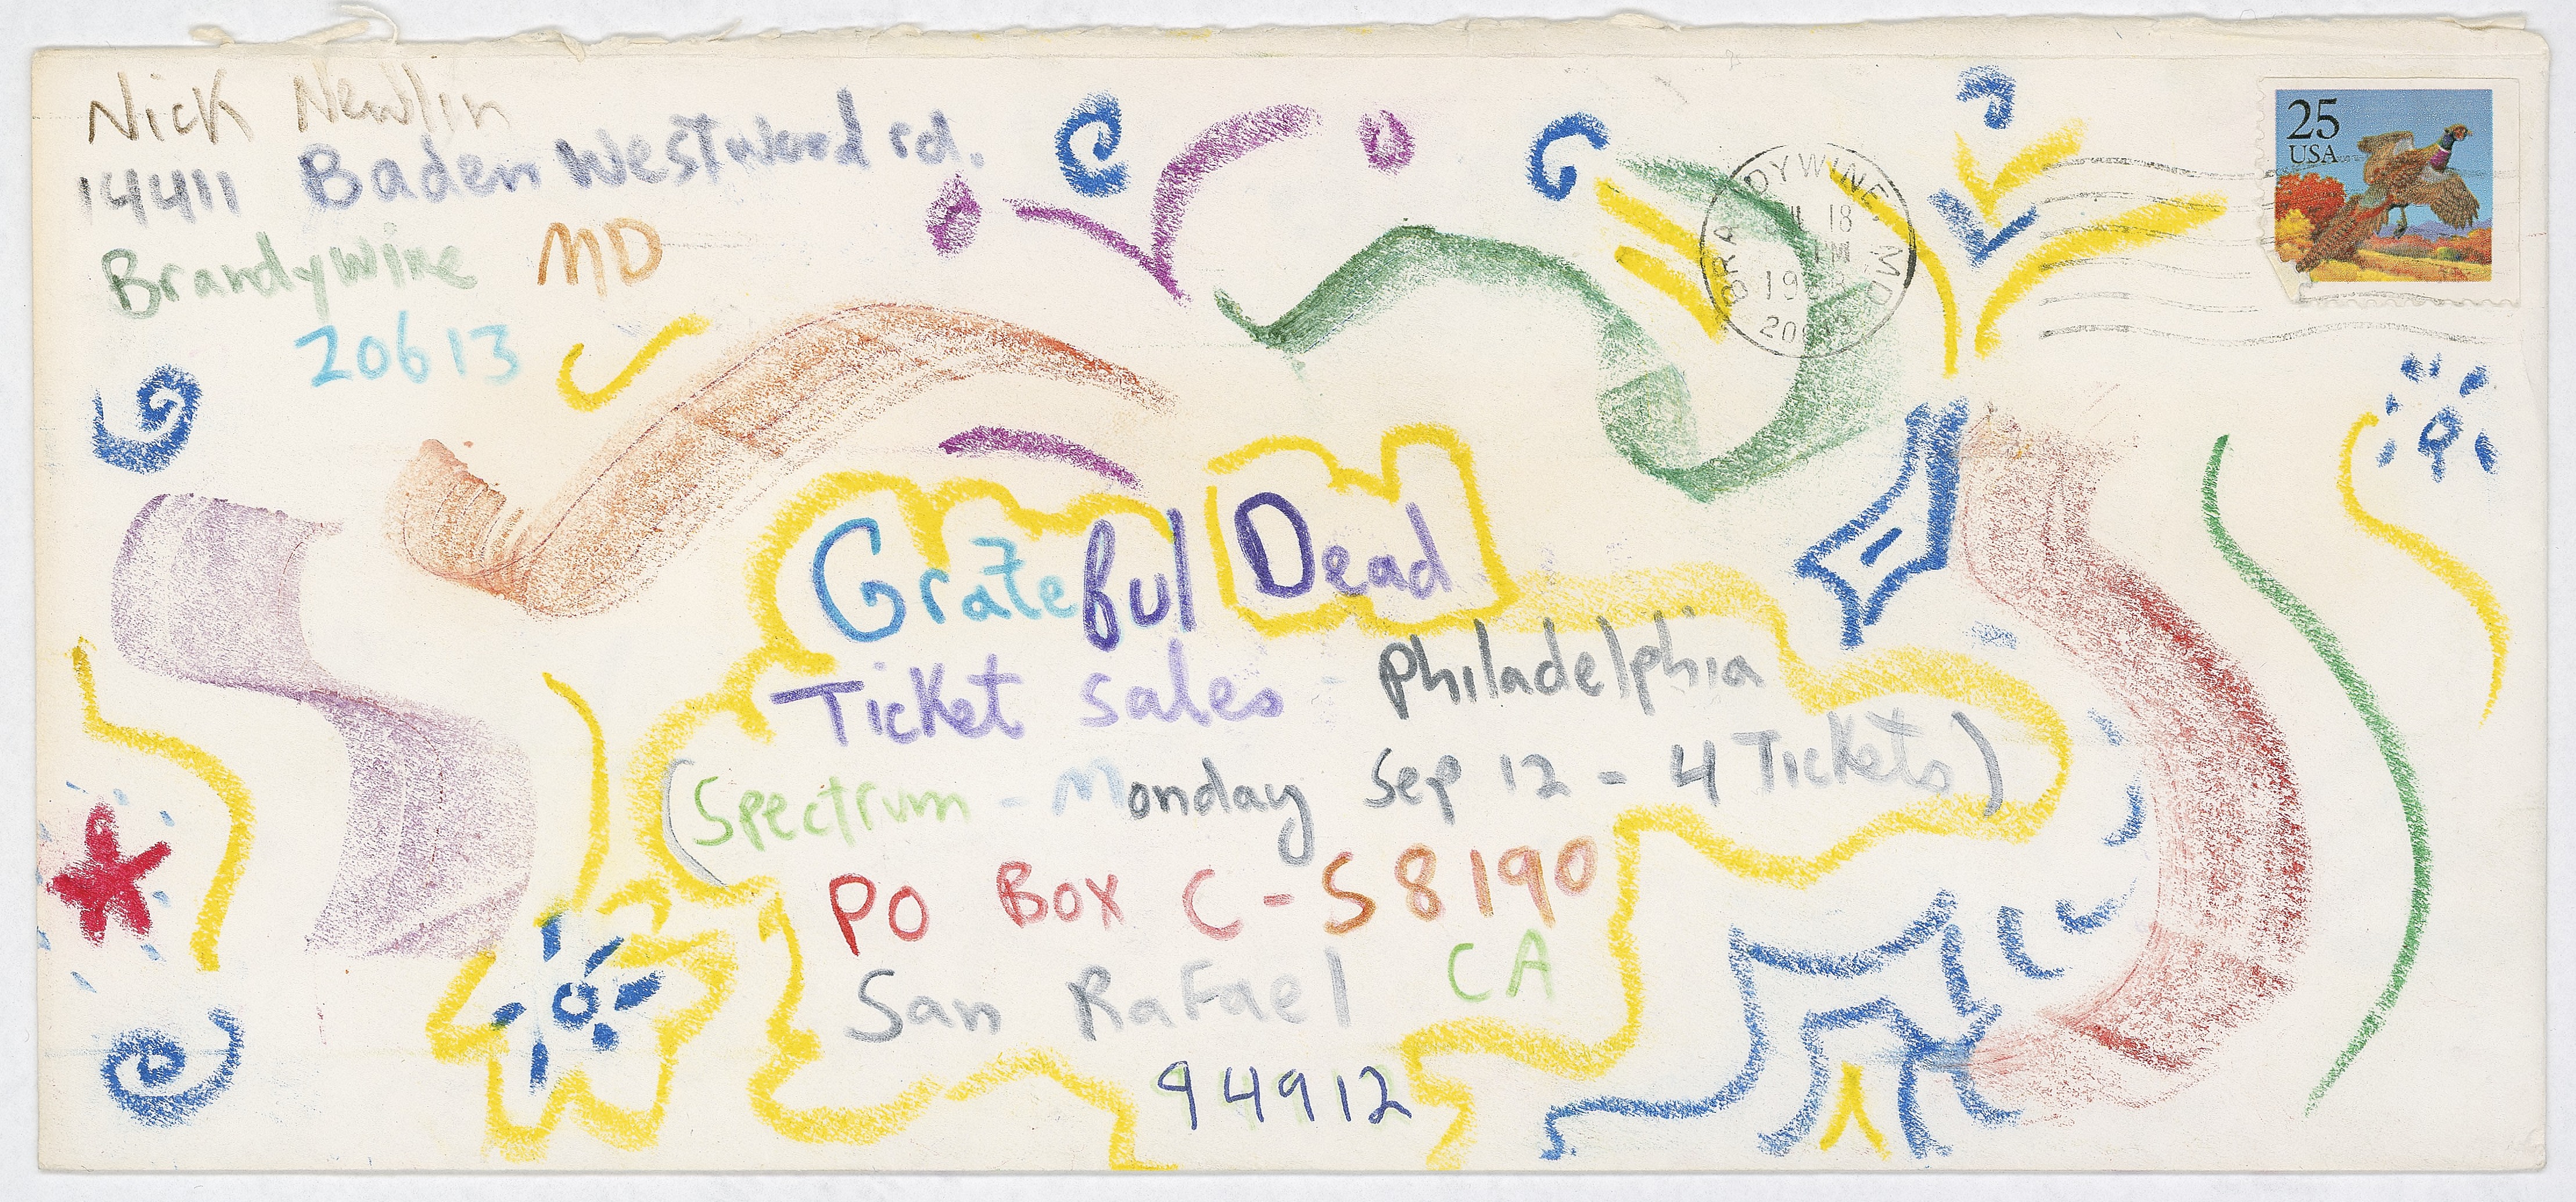 Nick Newlin
14411 Baden Westwood rd.
Brandywine MD
20613
25
USA
BRANDYWINE, MD
18
PM
1988
Grateful Dead
Ticket Sales - Philadelphia
(Spectrum - Monday Sep 12 - 4 Tickets)
PO Box C-S8190
San Rafael CA
94912